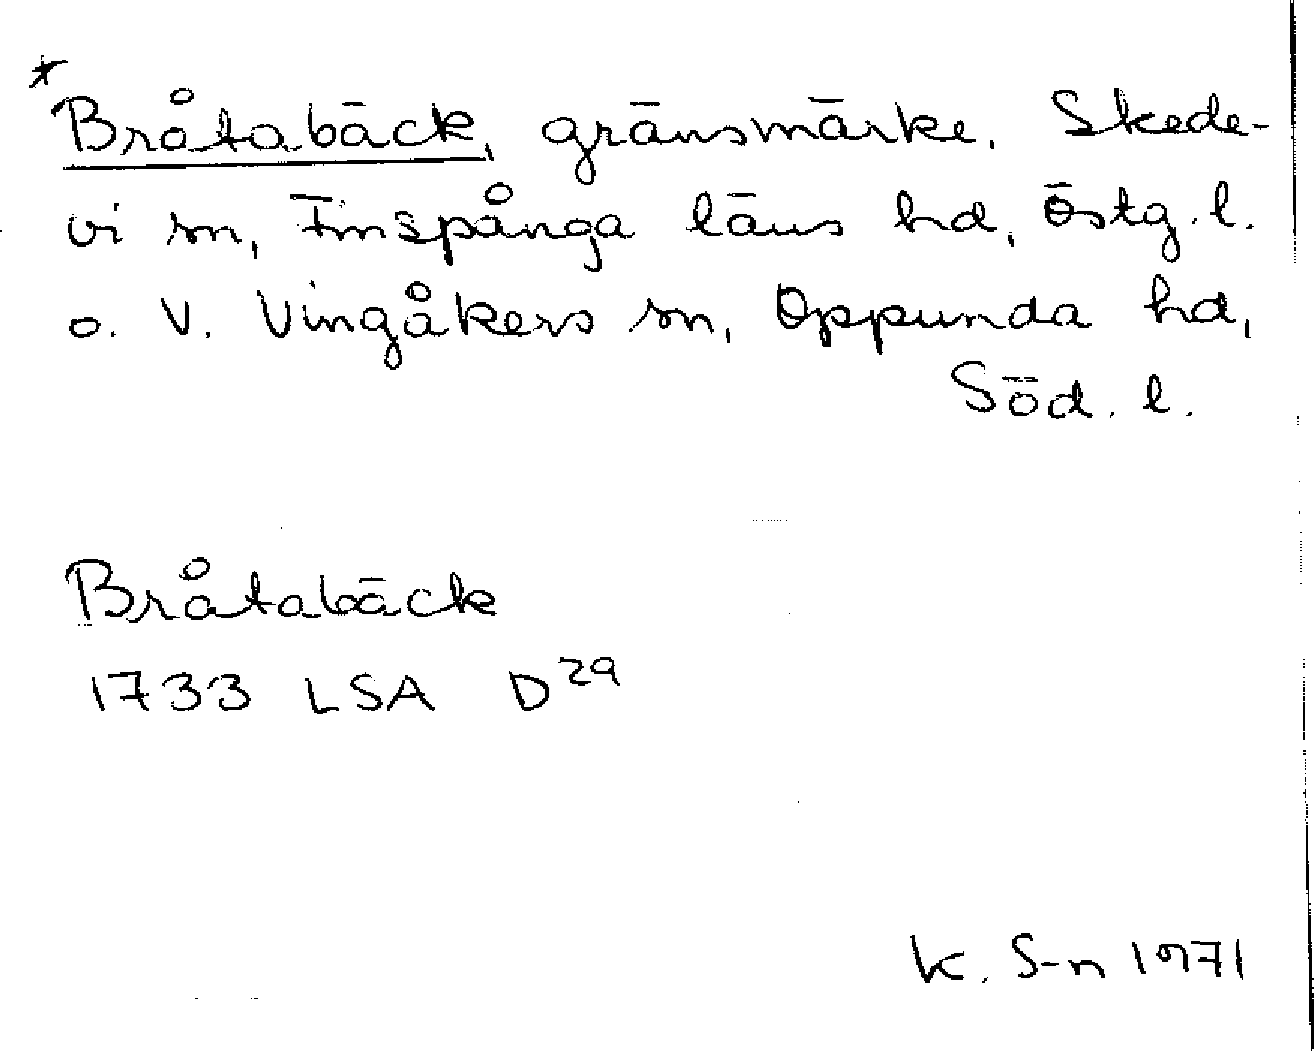 *Bråtabäck, gränsmärke. Skede-
vi sn, Finspånga läns hd, Östg. l.
o. V. Vingåkers sn, Oppunda hd,
Söd. l.
Bråtabäck
1733 LSA D²⁹
K. S-n 1971